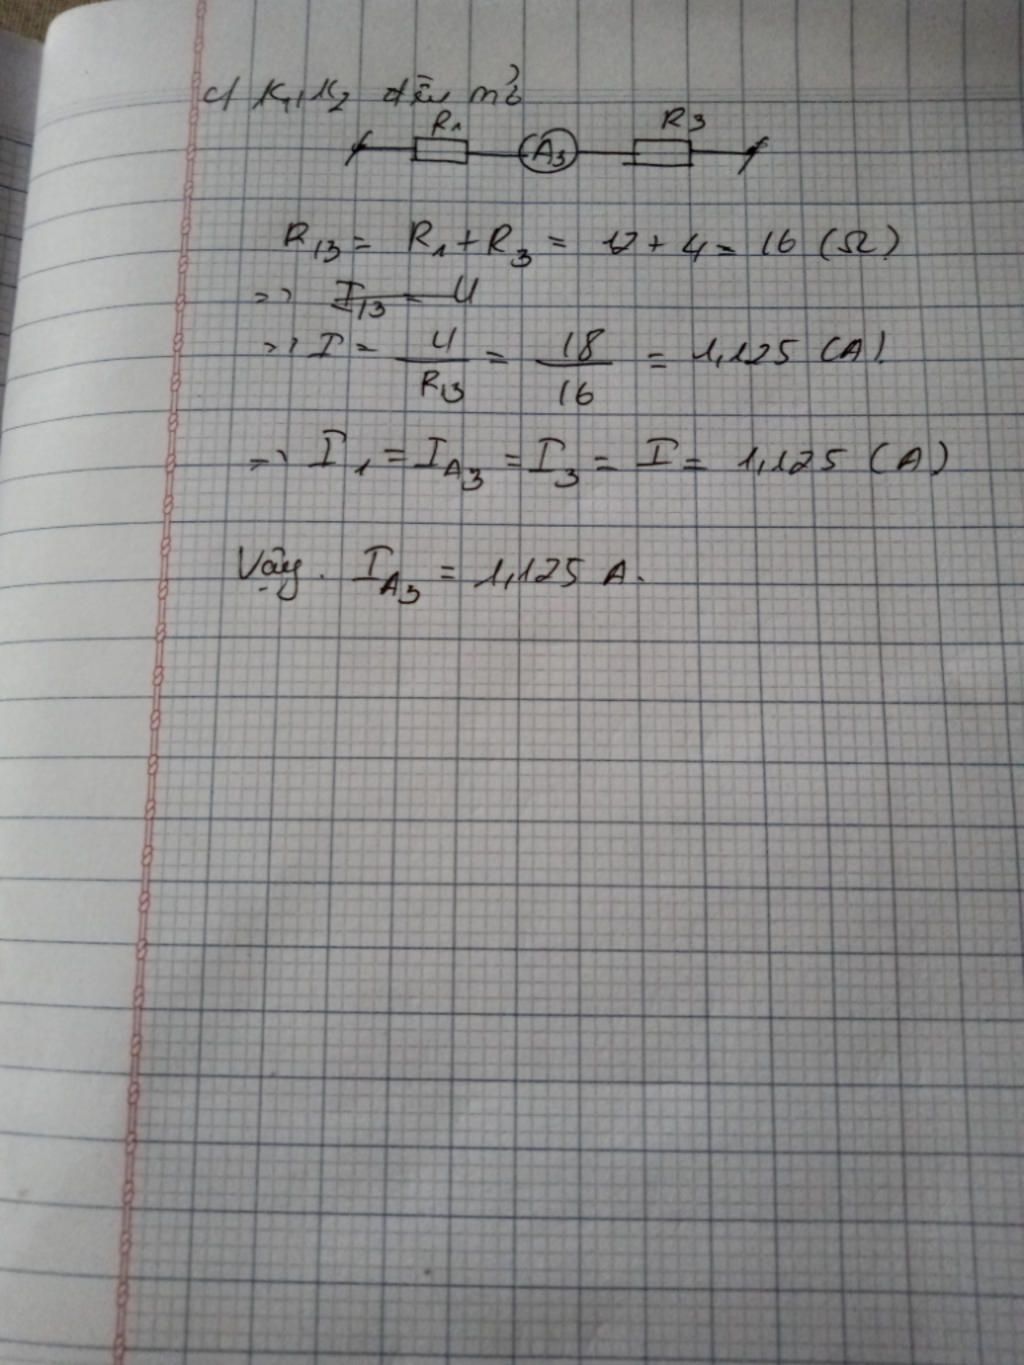 c/ K1, K2 đều mở
R1 A3 R3
R13 = R1 + R3 = 12 + 4 = 16 (Ω)
=> I13 = U
=> I = U / R13 = 18 / 16 = 1,125 (A).
=> I1 = IA3 = I3 = I = 1,125 (A)
Vậy. IA3 = 1,125 A.